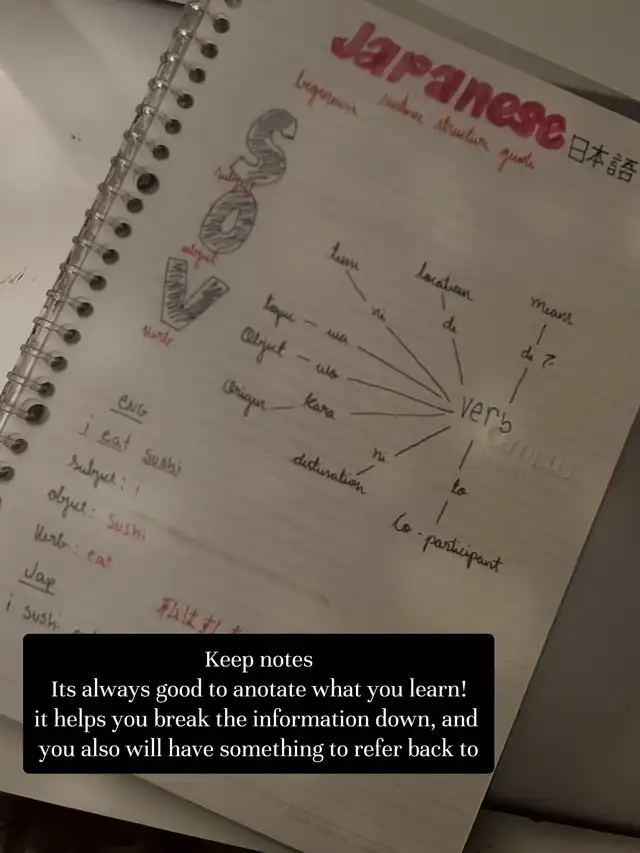 Japanese 日本語
sentence structure guide
S
subject
O
object
V
verb
time
location
means
ni
de
de ?
topic — wa
Object — wo
Origin — kara
verb
ni
destination
to
Co-participant
ENG
i eat sushi
subject: i
object: sushi
Verb: eat
Jap
i sushi
私はすし
Keep notes
Its always good to anotate what you learn!
it helps you break the information down, and
you also will have something to refer back to